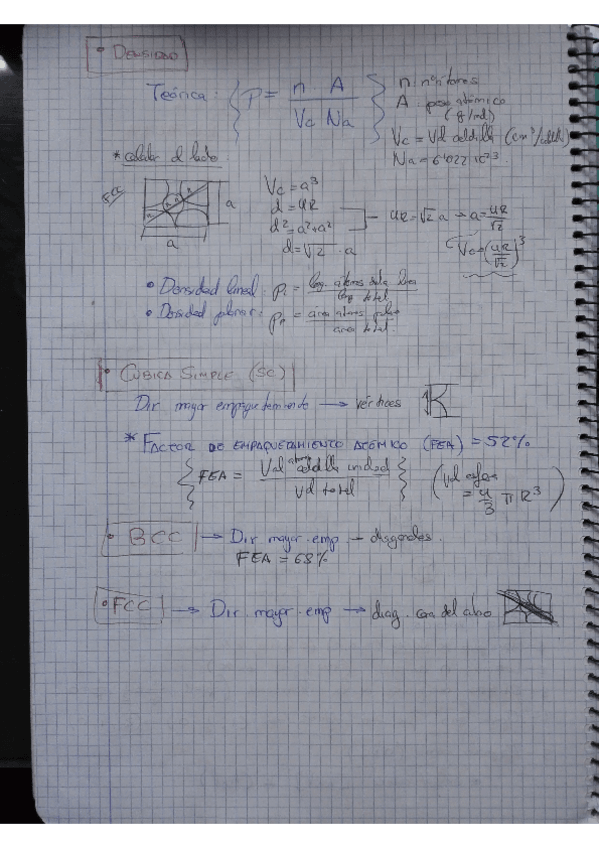 • DENSIDAD
Teórica: ρ = n A / Vc Na
n: nº iones
A: peso atómico
(g/mol)
Vc = Vol celdilla (cm³/celdilla)
Na = 6'022 10²³
* calcular el lado
a
a
Vc = a³
d = 4R
d² = a² + a²
d = √2 · a
4R = √2 a → a = 4R/√2
Vc = (4R/√2)³
• Densidad lineal: ρL = long. atomos sobre linea / long total
• Densidad planar: ρp = area atomos plano / area total.
• CÚBICA SIMPLE (SC)
Dir mayor empaquetamiento → vértices
* FACTOR DE EMPAQUETAMIENTO ATÓMICO (FEA) = 52%
FEA = Vol atomos celdilla unidad / Vol total
(Vol esfera = 4/3 π R³)
• BCC → Dir mayor emp → diagonales.
FEA = 68%
• FCC → Dir. mayor emp → diag. cara del cubo